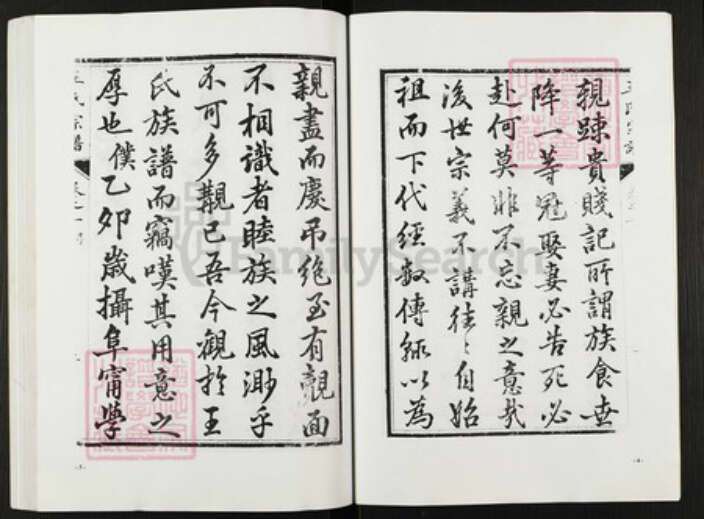 親踈貴賤記所謂族食世
降一等冠娶妻必告死必
赴何莫非不忘親之意哉
後世宗義不講徃〻自始
祖而下代經數傳緜以為
親盡而慶吊絶至有覿面
不相識者睦族之風渺乎
不可多覯已吾今觀於王
氏族譜而竊嘆其用意之
厚也僕乙夘歲攝阜甯學
氏宗譜
FamilySearch